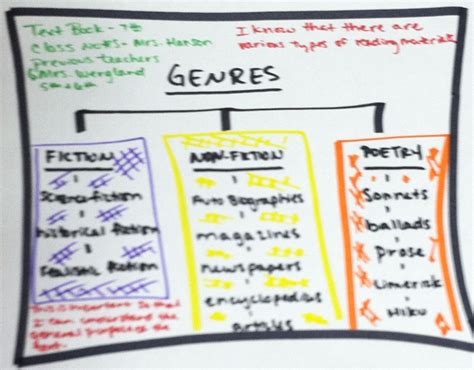 Text Book - 7th
Class Notes - Mrs. Hanson
previous teachers
Mrs. Wergland
5th + 6th
I know that there are
various types of reading materials
GENRES
FICTION
Science fiction
historical fiction
realistic fiction
NON-FICTION
Auto Biographies
magazines
newspapers
encyclopedias
articles
POETRY
Sonnets
ballads
prose
Limerick
Hiku
This is important so that
I can understand the
general purpose of the
text.